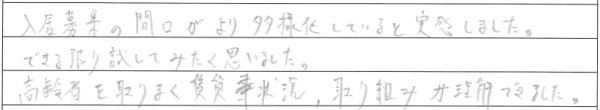 入居募集の間口がより多様化していると実感しました。
できる限り試してみたく思いました。
高齢者を取りまく賃貸事状況,取り組みが理解できました。